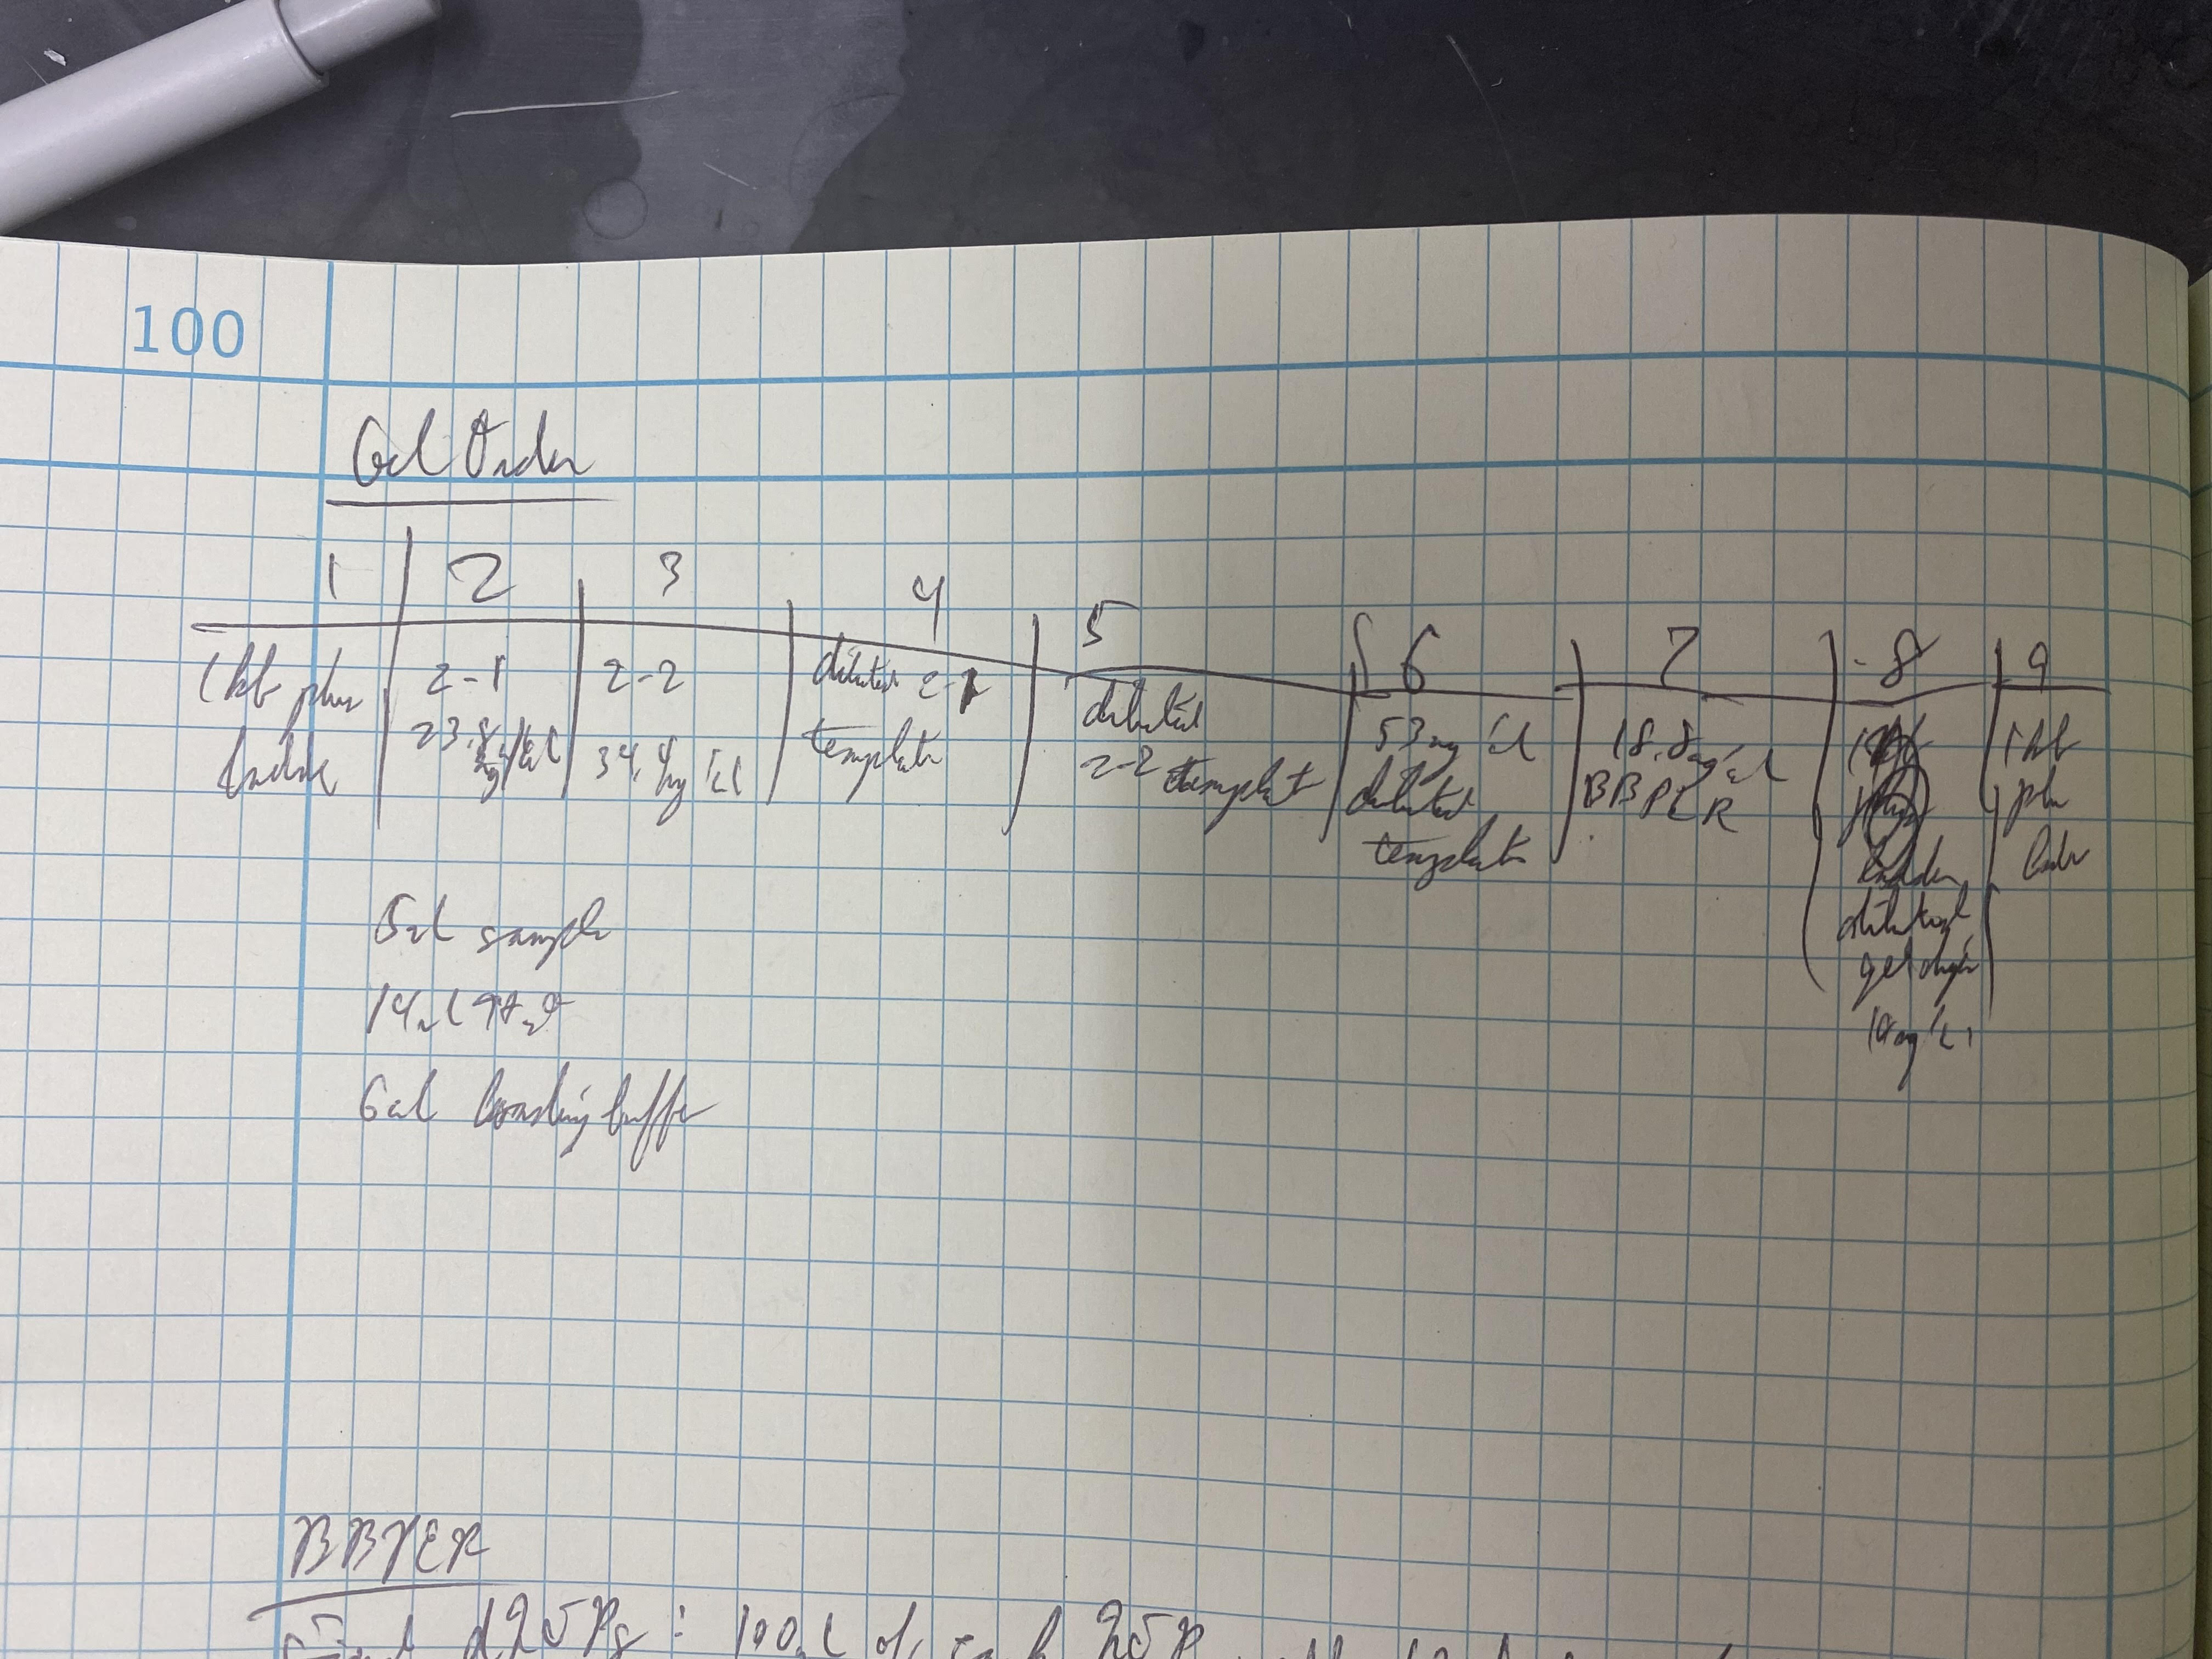 100
Gel Order
1 2 3 4 5 6 7 8 9
1kb plus
ladder
2-1
23.8
ng/ul
2-2
34.4ng/ul
diluted 2-1
template
diluted
2-2 template
53ng/ul
diluted
template
18.8ng/ul
BB PCR
ladder
diluted
gel
10ng/ul
1kb
plus
ladder
5ul sample
14ul
6ul loading buffer
BBPCR
100ul of each